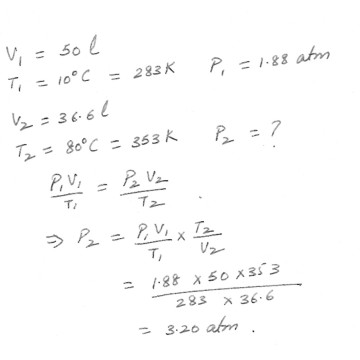 V₁ = 50 l
T₁ = 10°C = 283K P₁ = 1.88 atm
V₂ = 36.6 l
T₂ = 80°C = 353K P₂ = ?
P₁V₁/T₁ = P₂V₂/T₂ .
⇒ P₂ = P₁V₁/T₁ × T₂/V₂
= 1.88 × 50 × 353 / 283 × 36.6
= 3.20 atm .